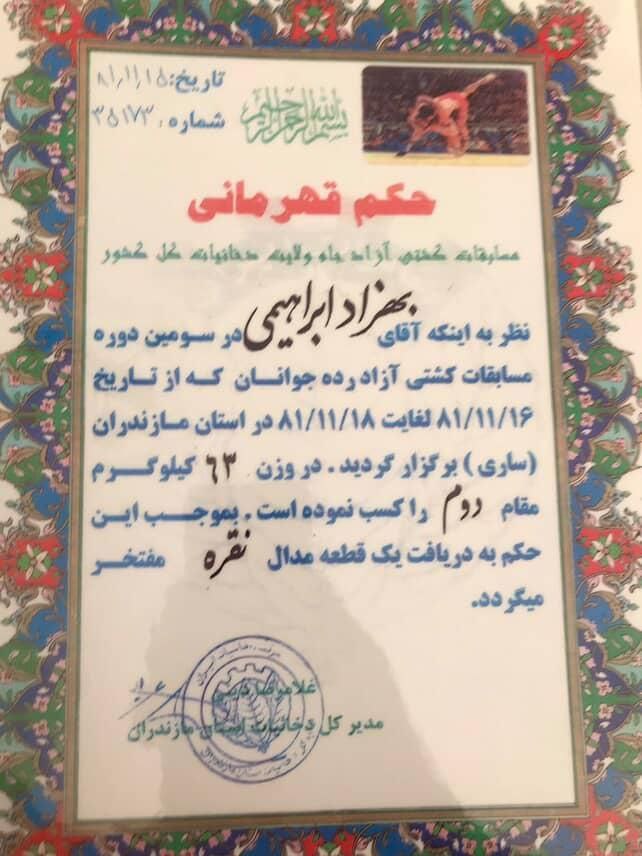 تاریخ: ۸۱/۱۱/۱۵
بسم الله الرحمن الرحیم
شماره: ۳۵۱۷۳
حکم قهرمانی
مسابقات کشتی آزاد جام ولایت دخانیات کل کشور
نظر به اینکه آقای بهزاد ابراهیمی در سومین دوره
مسابقات کشتی آزاد رده جوانان که از تاریخ
۸۱/۱۱/۱۶ لغایت ۸۱/۱۱/۱۸ در استان مازندران
(ساری) برگزار گردید. در وزن ۶۳ کیلوگرم
مقام دوم را کسب نموده است. بموجب این
حکم به دریافت یک قطعه مدال نقره مفتخر
میگردد.
غلامرضا
مدیر کل دخانیات استان مازندران